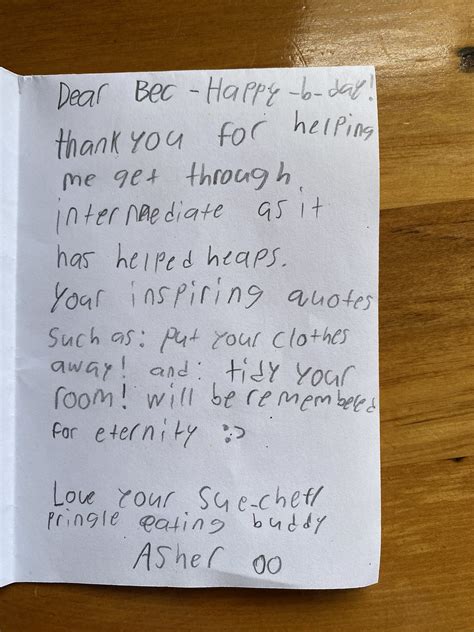 Dear Bec - Happy -b-day!
thank you for helping
me get through
intermediate as it
has helped heaps.
Your inspiring quotes
Such as: put your clothes
away! and: tidy your
room! will be remembered
for eternity :)
Love your Sue-chef/
pringle eating buddy
Asher OO